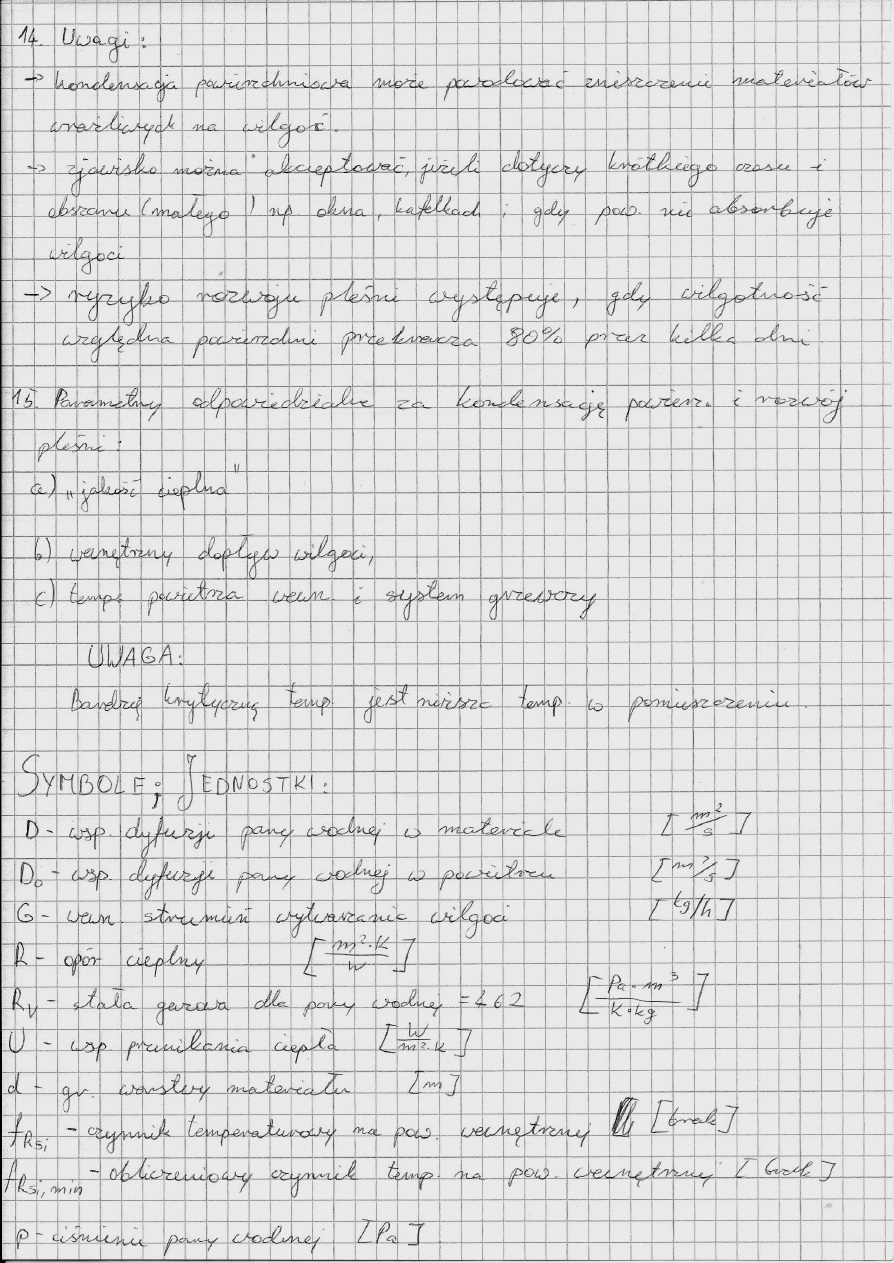 14. Uwagi:
→ kondensacja powierzchniowa może powodować zniszczenie materiałów
wrażliwych na wilgoć.
→ zjawisko można akceptować, jeżeli dotyczy krótkiego czasu i
obszaru (małego) np okna, kafelkach i gdy pow. nie absorbuje
wilgoci
→ ryzyko rozwoju pleśni występuje, gdy wilgotność
względna powierzchni przekracza 80% przez kilka dni
15. Parametry odpowiedzialne za kondensację powierz. i rozwój
pleśni:
a) „jakość cieplna"
b) wewnętrzny dopływ wilgoci,
c) temp. powietrza wewn. i system grzewczy
UWAGA:
Bardzię krytyczną temp. jest niższa temp. w pomieszczeniu.
SYMBOLE; JEDNOSTKI:
D - wsp. dyfuzji pary wodnej w materiale [m²/s]
D₀ - wsp. dyfuzji pary wodnej w powietrzu [m²/s]
G - wewn. strumień wytwarzania wilgoci [kg/h]
R - opór cieplny [m²·K/W]
Rᵥ - stała gazowa dla pary wodnej = 462 [Pa·m³/K·kg]
U - wsp przenikania ciepła [W/m²·K]
d - gr. warstwy materiału [m]
fRsi - czynnik temperaturowy na pow. wewnętrznej [brak]
fRsi,min - obliczeniowy czynnik temp. na pow. wewnętrznej [brak]
p - ciśnienie pary wodnej [Pa]